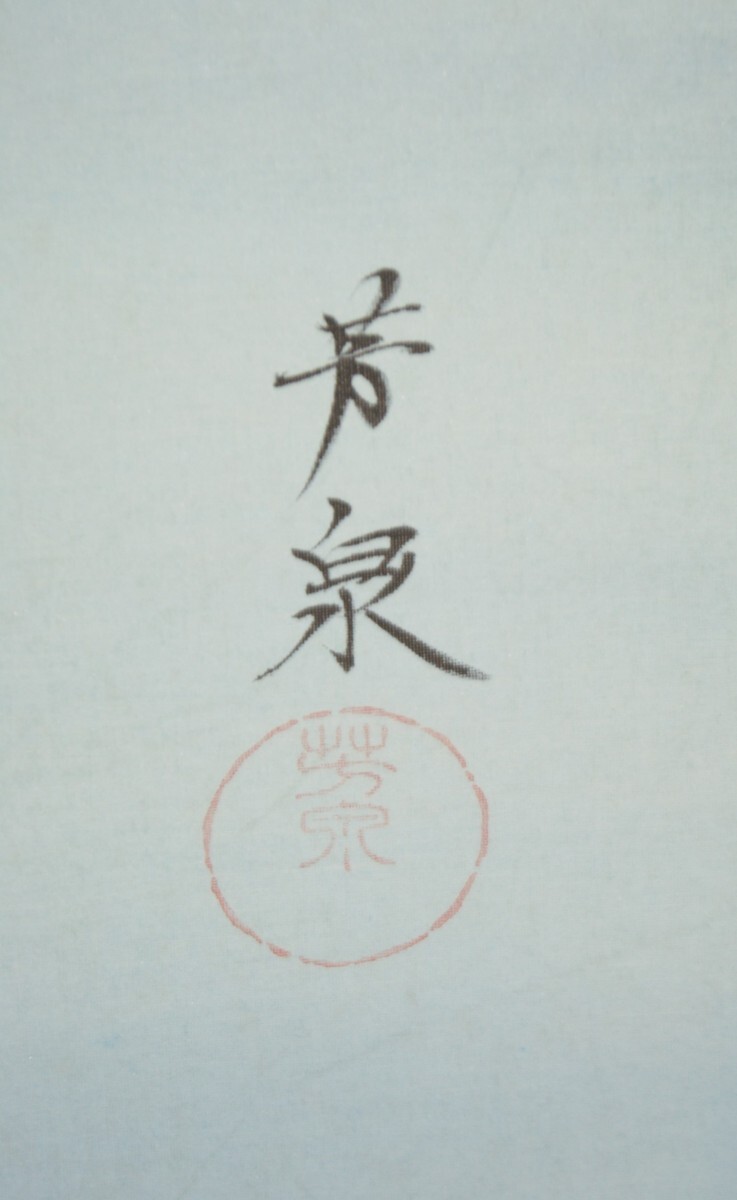 芳泉
芳泉